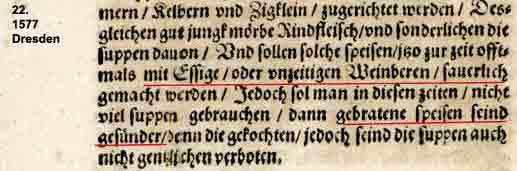 22.
1577
Dresden
mern / Kelbern vnd Zigklein / zugerichtet werden / Des-
gleichen gut jungk mörbe Rindfleisch / vnd sonderlichen die
suppen dauon / Vnd sollen solche speisen / itzo zur zeit offt-
mals mit Essige / oder vnzeitigen Weinberen / sauerlich
gemacht werden / Jedoch sol man in diesen zeiten / nicht
viel suppen gebrauchen / dann gebratene speisen seind
gesünder / denn die gekochten / jedoch seind die suppen auch
nicht gentzlichen verboten.